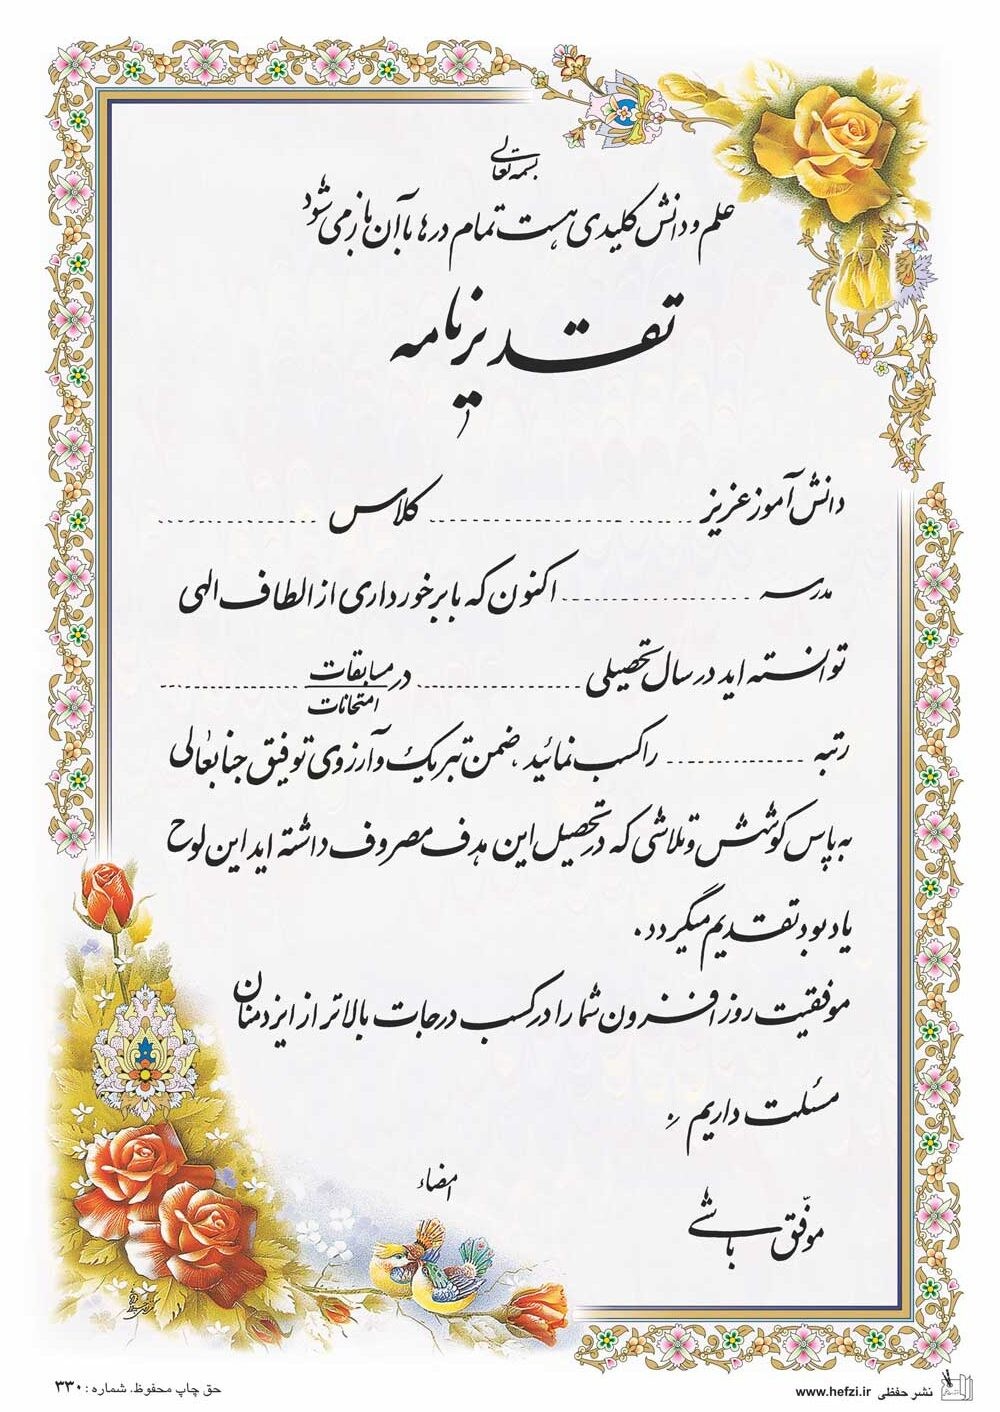 بسمه تعالی
علم و دانش کلیدی هست تمام درها با آن باز می شود
تقدیرنامه
دانش آموز عزیز .................... کلاس ....................
مدرسه .................... اکنون که با برخورداری از الطاف الهی
توانسته اید در سال تحصیلی .................... در مسابقات ....................
امتحانات
رتبه .................... را کسب نمائید ، ضمن تبریک و آرزوی توفیق جنابعالی
به پاس کوشش و تلاشی که در تحصیل این هدف مصروف داشته اید این لوح
یادبود تقدیم میگردد.
موفقیت روز افزون شما را در کسب درجات بالاتر از ایزد منان
مسئلت داریم .
امضاء
موفّق باشی
حق چاپ محفوظ. شماره : ۳۳۰
نشر حفظی www.hefzi.ir